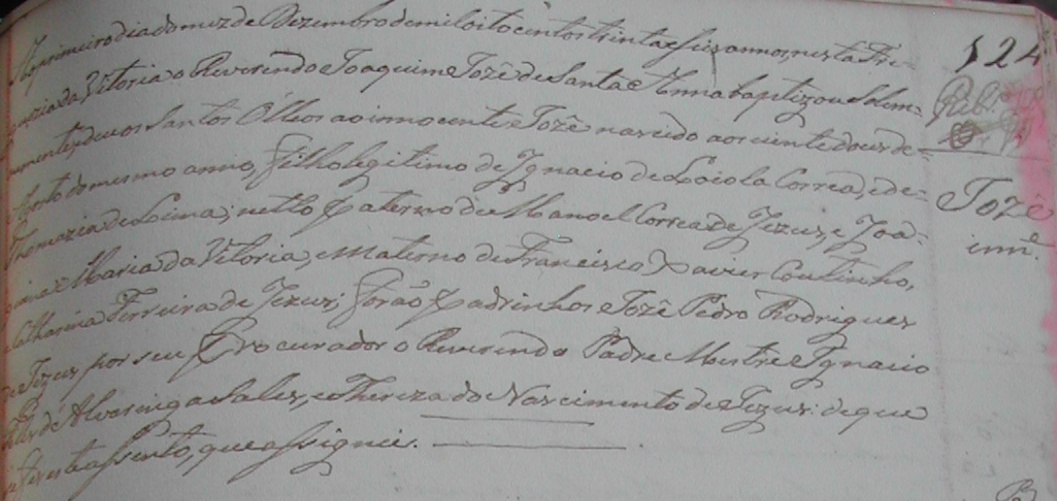 Ao primeiro dia do mez de Dezembro de mil oito centos trinta e seis annos, nesta Fre-
guezia da Vitoria o Reverendo Joaquim Jozê de Santa Anna baptizou Solem-
nemente, e deu os Santos Óleos ao innocente Jozê nascido aos vinte e dous de
Agosto do mesmo anno, filho legitimo de Ignacio de Loiola Correa, e de
Thomazia de Lima; netto paterno de Manoel Correa de Jezus, e Joa-
quina Maria da Vitoria, e Materno de Francisco Xavier Coutinho,
e Catharina Ferreira de Jezus; forão padrinhos Jozê Pedro Rodrigues
de Jezus por seu Procurador o Reverendo Padre Mestre Ignacio
de Alvarenga Sales, e Thereza do Nascimento de Jezus: de que
fis este assento, que assignei.
124
Jozê
inn.e
B